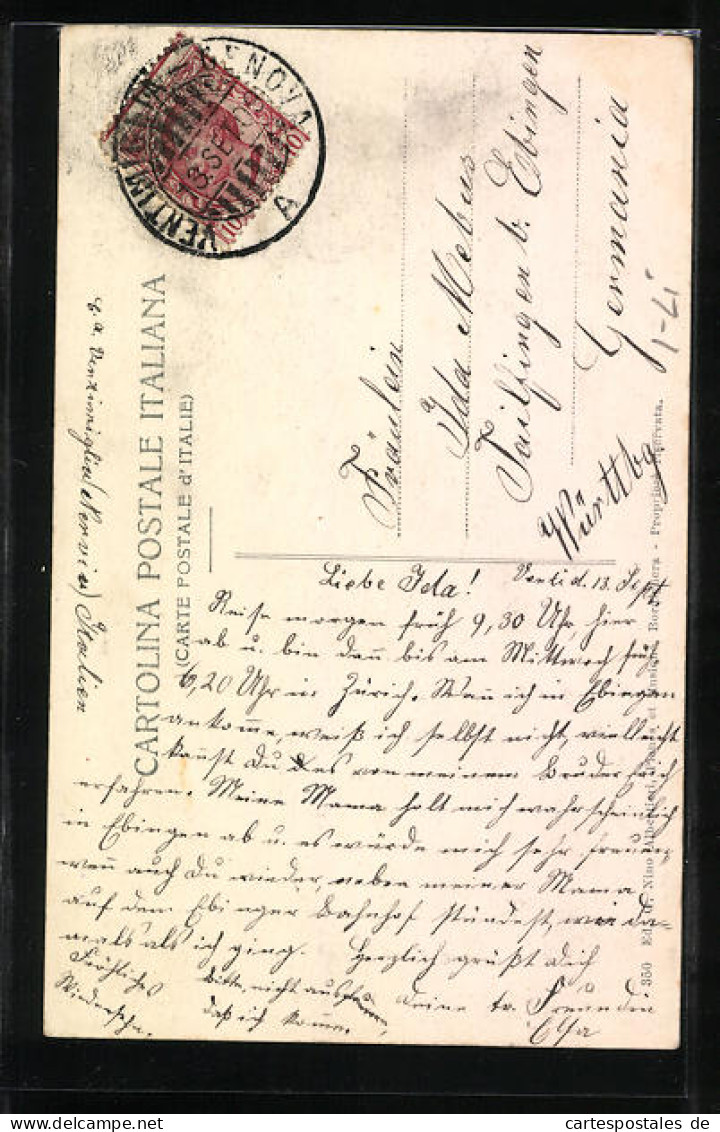 VENTIMIGLIA GENOVA
SET
A
10 10
CARTOLINA POSTALE ITALIANA
(CARTE POSTALE d'ITALIE)
Fräulein
Ida Mebus
Tailfingen b. Ebingen
Germania
Württbg
Liebe Ida! 13. Sept
Reise morgen früh 9,30 Uhr hier
ab u. bin dann bis am Mittwoch früh
6,20 Uhr in Zürich. Wann ich in Ebingen
ankomme, weiß ich selbst nicht, vielleicht
kannst Du das von meinem Bruder
erfahren. Meine Mama holt mich wahrscheinlich
in Ebingen ab u. es würde mich sehr freuen,
wenn auch Du wieder, neben meiner Mama
auf dem Ebinger Bahnhof stündest, wie da-
mals als ich ging. Herzlich grüßt Dich
Deine tr. Freundin
Elsa
Fröhliches
Wiedersehn.
bitte, nicht
daß ich komme.
(Nervia) Italien
350 Nino Bordighera - Propriété réservata.
cartespostales de
www.delcampe.net